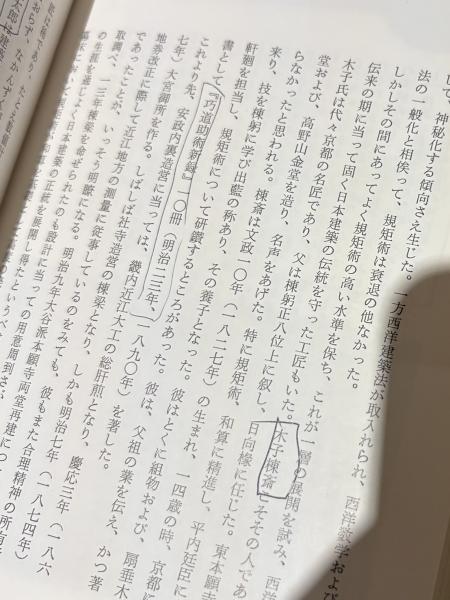 して、神秘化する傾向さえ生じた。一方西洋建築法が取入れられ、西洋数学および
法の一般化と相俟って、規矩術は衰退の他なかった。
しかしその間にあってよく規矩術の高い水準を保ち、これが一層の展開を試み、西洋
伝来の期に当って固く日本建築の伝統を守った工匠もいた。木子棟斎、その人であ
木子氏は代々京都の名匠であり、父は棟躬正八位上に叙し、日向椽に任じた。東本願寺
堂および、高野山金堂を造り、名声をあげた。特に規矩術、和算に精進し、平内廷臣に
らなかったと思われる。棟斎は文政一〇年(一八二七年)の生まれ、一四歳の時、京都に
来り、技を棟躬に学び出藍の称あり、その養子となった。彼はとくに組物および、扇垂木
軒廻を担当し、規矩術について研鑽するところがあった。彼は、父祖の業を伝え、かつ著
書として、『巧道助術新録』一〇冊(明治二三年、一八九〇年)を著した。
これより先、安政内裏造営に当っては、畿内近江大工の総肝煎となり、慶応三年(一八六
七年)大宮御所を作る。しばしば社寺造営の棟梁となり、しかも明治七年(一八七四年)
地券改正に際して近江地方の測量に従事しているのをみても、彼もまた合理精神の所有
であったことが、いっそう明瞭になる。明治九年大谷派本願寺両堂再建につ
取調べ、一三年棟梁を命ぜられたのも設計に当っての用意周到さ
の生涯を通じよく日本建築の正統を展開し得たというべ